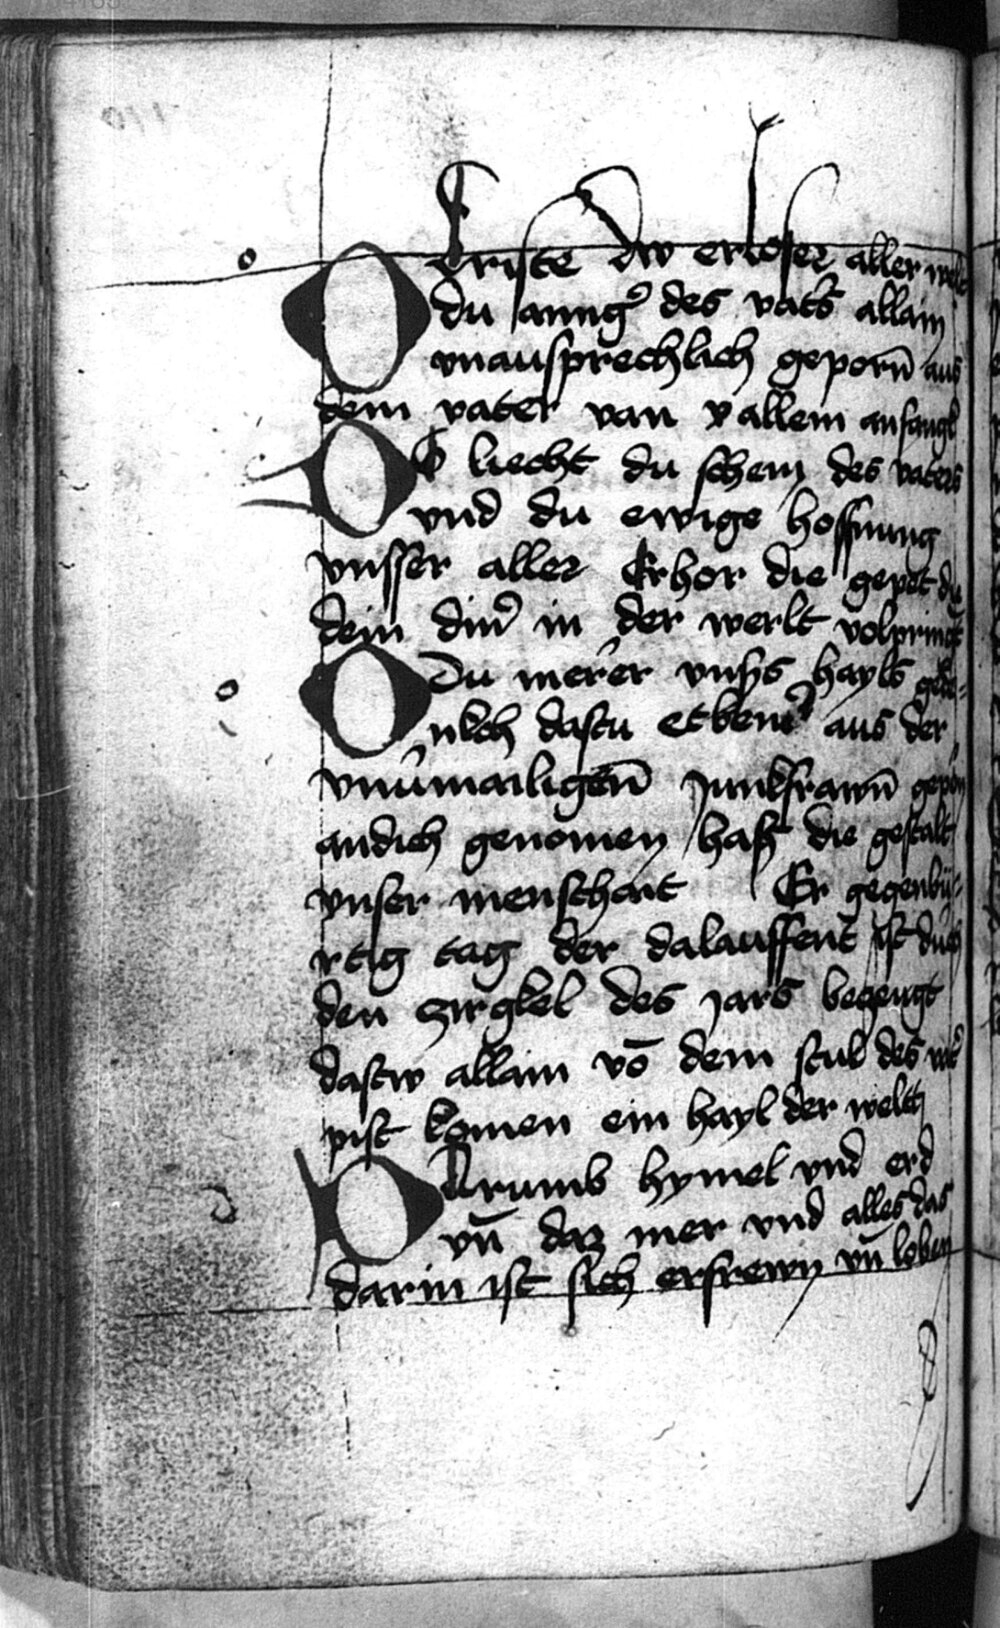 O Criste dw erloser aller welt
du ainig' des vat's allain
vnausprechlich geporn̄ aus
dem vater van v allem anfangk
O O liecht du schein des vaters
vnd du ewige hoffnung
vnsser aller Erhor die gepet die
dein din' in der werlt volpringt
O Du merer vns's hayls gede=
nkch dastu etbenn' aus der
vnuermailigen̄ junkfrawn̄ gepor
andich genomen hast die gestalt
vnser menschait Er gegenbü=
rtig tag der dalauffent ist durch
den zirgkel des jars beczeugt
dastw allain vō dem stul des vat'
pist komen ein hayl der weltt
D Arumb hymel vnd erd
vn̄ daz mer vnd alles das
darin ist sich erfrewn vn̄ loben